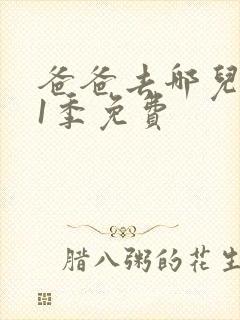 爸爸去哪兒
1季免費
腊八粥的花生